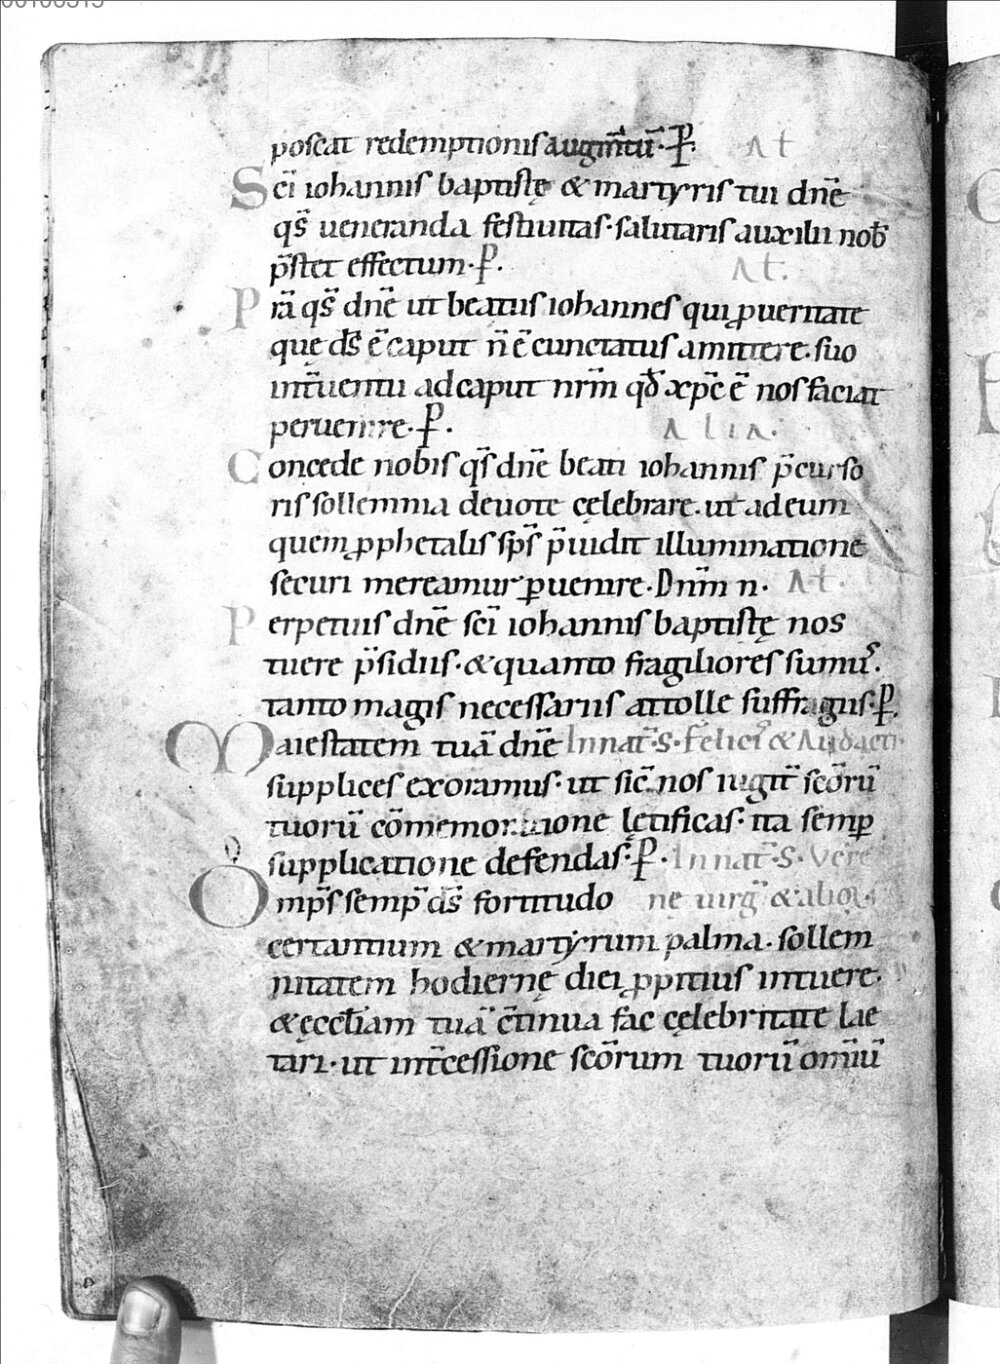 poscat redemptionis augm̅tu̅. P. At
Sci̅ iohannis baptistę & martyris tui dne̅
qs̅ ueneranda festiuitas. salutaris auxilii nob̅
p̅stet effectum. P. At.
Pra̅ qs̅ dne̅ ut beatus iohannes qui ꝓ ueritate
que ds̅ e̅ caput n̅ e̅ cunctatus amittere. suo
int̅uentu ad caput nrm̅ qd̅ xpc̅ e̅ nos faciat
peruenire. P. Alia.
Concede nobis qs̅ dne̅ beati iohannis p̅curso
ris sollemnia deuote cęlebrare. ut ad eum
quem ꝓphetalis sps̅ p̅uidit illuminatione
securi mereamur ꝑuenire. Dnm̅ n. At.
Perpetuis dne̅ sci̅ iohannis baptistę nos
tuere p̅sidiis. & quanto fragiliores sumus.
tanto magis necessariis attolle suffragiis. P.
Maiestatem tua̅ dne̅ In nat̅. S. Felicis & Audacti.
supplices exoramus. ut sic̅ nos iugit̅ sco̅ru̅
tuoru̅ co̅memoratione lętificas. ita semꝑ
supplicatione defendas. P. In nat̅. S. Vere
Omps̅ semp̅ ds̅ fortitudo ne uirg̅ & alioꝝ
certantium & martyrum palma. sollem
nitatem hodiernę diei ꝓpitius intuere.
& ęcct̅iam tua̅ c̅tinua fac cęlebritate lae
tari. ut int̅cessione sco̅rum tuoru̅ omiu̅